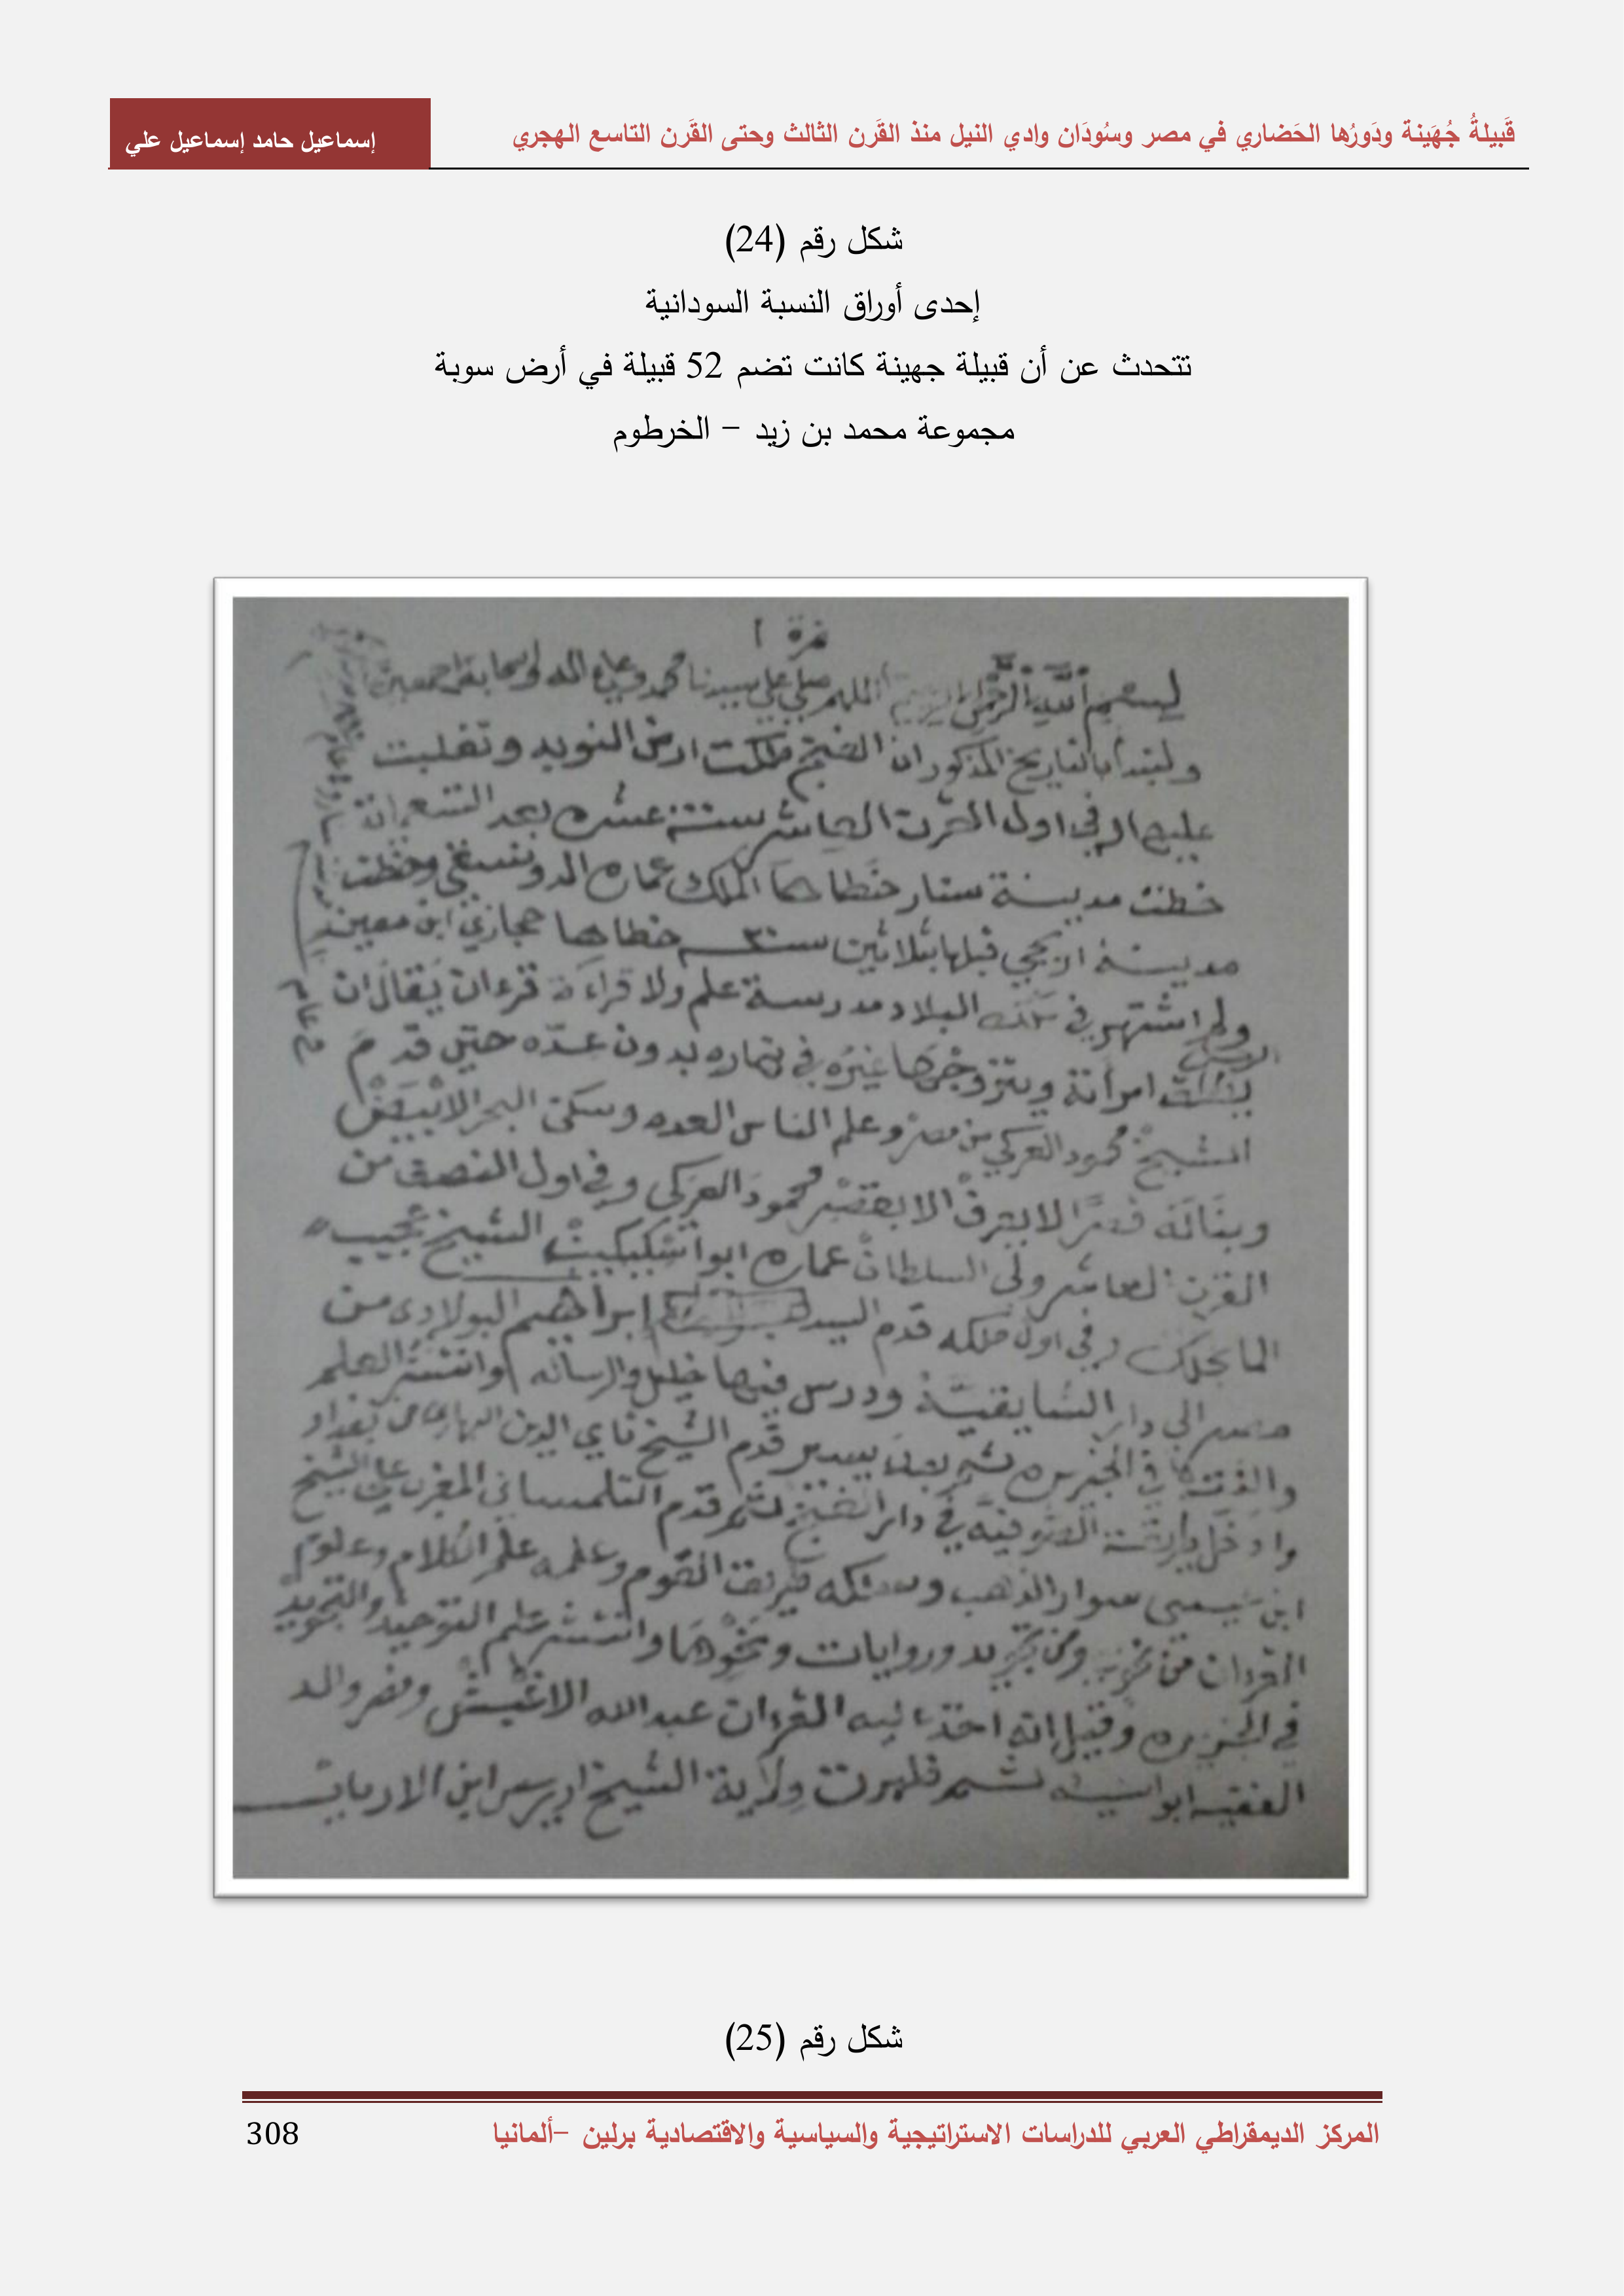 قَبيلةُ جُهَينة ودَورُها الحَضاري في مصر وسُودَان وادي النيل منذ القَرن الثالث وحتى القَرن التاسع الهجري
إسماعيل حامد إسماعيل علي
شكل رقم (24)
إحدى أوراق النسبة السودانية
تتحدث عن أن قبيلة جهينة كانت تضم 52 قبيلة في أرض سوبة
مجموعة محمد بن زيد – الخرطوم
نمرة ١
بسم الله الرحمن الرحيم اللهم صلي علي سيدنا محمد وعلي اله واصحابه اجمعين
ولنبتدأ بالتاريخ المذكور ان الفنج ملكت ارض النوبه وتغلبت
عليها في اول القرن العاشر سنة عشره بعد التسعمائة
خطت مدينة سنار خطاها الملك عماره الدونسقي وخطت
مدينة اربجي قبلها بثلاثين سنه خطاها حجازي ابن معين
ولم اشتهر في تلك البلاد مدرسة علم ولا قراءة قرءان يقال ان
امرأته ويتزوجها غيره في نهاره بدون عدّه حتى قدم
الشيخ محمود العركي من مصر وعلم الناس العده وسكن البحر الابيض
وبنا له قصرًا لا يعرف الا بقصر محمود العركي وفي اول النصف من
القرن العاشر ولى السلطان عماره ابوا الشيخ عجيب
المانجلك وفي اول ملكه قدم السيد إبراهيم البولادى من
مصر الى دار الشايقية ودرس فيها خليل والرسالة وانتشر العلم
والفقه في الجزيره ثم بعده بيسير قدم الشيخ تاج الدين البهاري من بغداد
وادخل طريقة الصوفيه في دار الفنج ثم قدم التلمساني المغربي على الشيخ
ابن عيسى سوار الذهب وسلكه طريقة القوم وعلمه علم الكلام وعلوم
القرءان من تجويد وروايات ونحوها وانتشر علم التوحيد والتجويد
في الجزيره وقيل انه اخذ عليه القرءان عبد الله الاغبش ونصر والد
الفقيه ابوا سنينه ثم ظهرت ولاية الشيخ ادريس ابن الارباب
شكل رقم (25)
المركز الديمقراطي العربي للدراسات الاستراتيجية والسياسية والاقتصادية برلين –ألمانيا
308